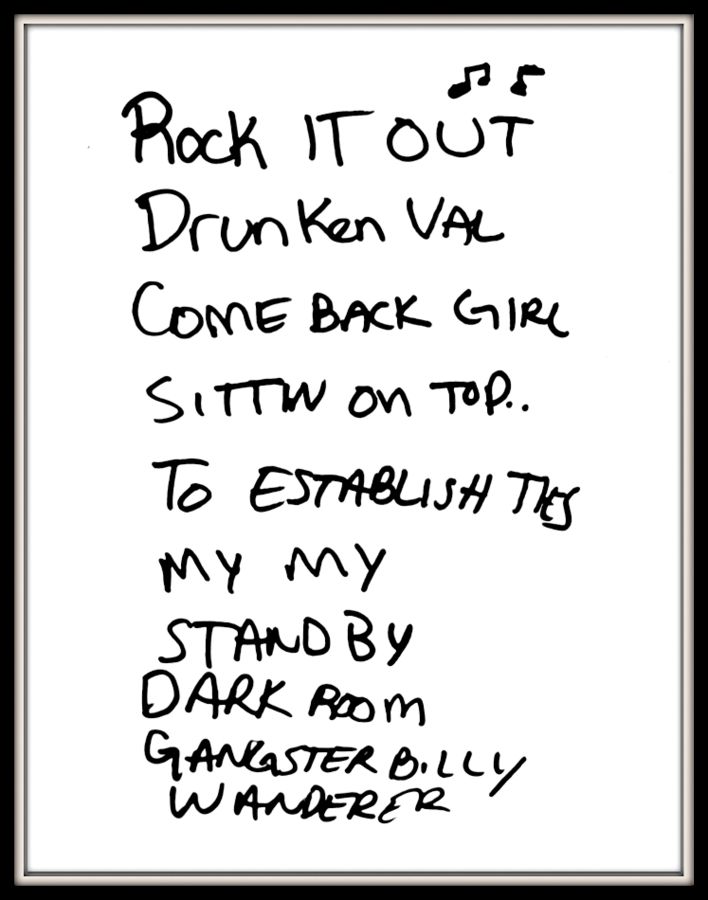 Rock IT OUT
Drunken VAL
COME BACK GIRL
SITTIN on TOP..
To ESTABLISH TIES
MY MY
STAND BY
DARK ROOM
GANGSTER BILLY
WANDERER